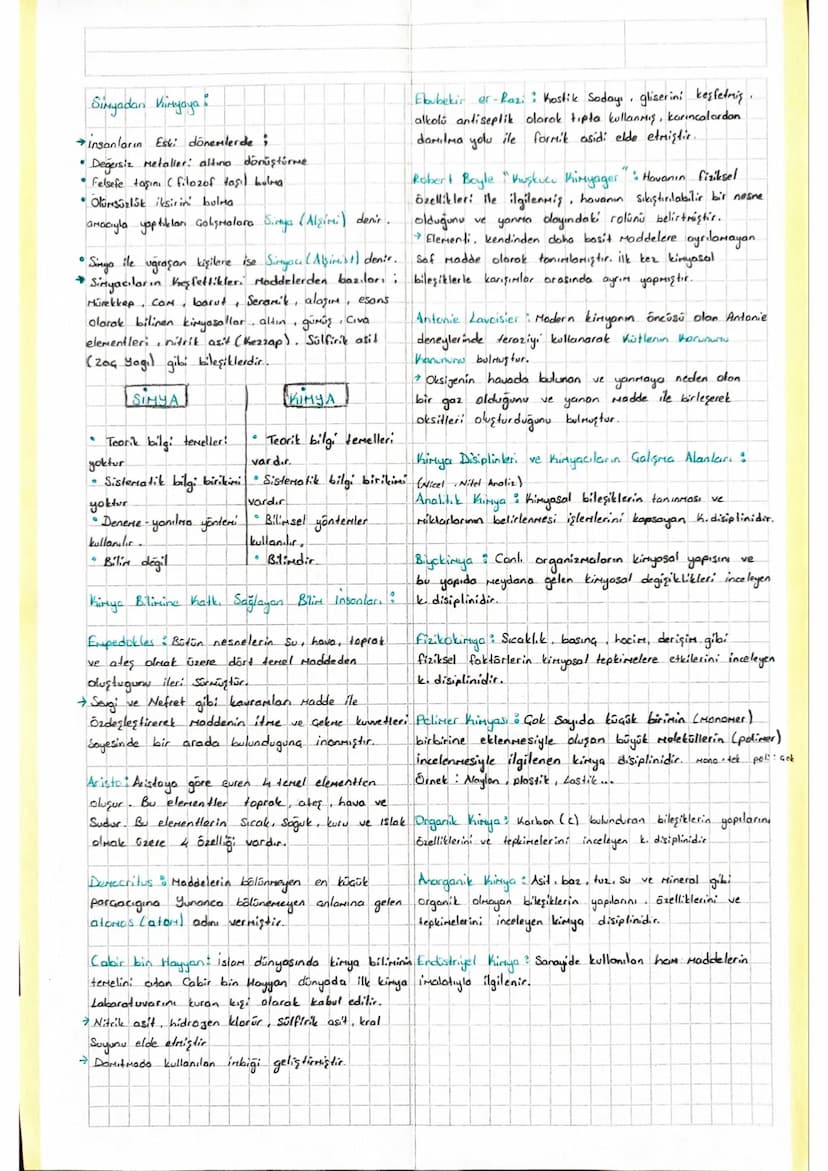 Simyadan Kimyaya :
→ İnsanların Eski dönemlerde ;
• Değersiz Metalleri altına dönüştürme
• Felsefe taşını (filozof taşı) bulma
• Ölümsüzlük iksirini bulma
amacıyla yaptıkları Çalışmalara Simya (Alşimi) denir.
• Simya ile uğraşan kişilere ise Simyacı (Alşimist) denir.
→ Simyacıların Keşfettikleri Maddelerden bazıları ;
Mürekkep, Cam, barut, Seramik, alaşım, esans
olarak bilinen kimyasallar, altın, gümüş, Cıva
elementleri, nitrik asit (Kezzap), Sülfirik asit
(Zaç Yağı) gibi bileşiklerdir.
SİMYA
• Teorik bilgi temelleri
yoktur
• Sistematik bilgi birikimi
yoktur
• Deneme-yanılma yöntemi
kullanılır.
• Bilim değil
KİMYA
• Teorik bilgi temelleri
vardır.
• Sistematik bilgi birikimi
vardır
• Bilimsel yöntemler
kullanılır.
• Bilimdir.
Kimya Bilimine Katkı Sağlayan Bilim İnsanları :
Empedokles : Bütün nesnelerin Su, hava, toprak
ve ateş olmak üzere dört temel Maddeden
oluştuğunu ileri Sürmüştür.
→ Sevgi ve Nefret gibi kavramları Madde ile
özdeşleştirerek Maddenin itme ve Çekme kuvvetleri
Sayesinde bir arada bulunduğuna inanmıştır.
Aristo : Aristoya göre evren 4 temel elementten
oluşur. Bu elementler toprak, ateş, hava ve
Sudur. Bu elementlerin Sıcak, Soğuk, kuru ve ıslak
olmak üzere 4 özelliği vardır.
Democritus : Maddelerin bölünmeyen en küçük
parçacığına Yunanca bölünemeyen anlamına gelen
atomos (atom) adını vermiştir.
Cabir bin Hayyan : İslam dünyasında kimya biliminin
temelini atan Cabir bin Hayyan dünyada ilk kimya
Labaratuvarını kuran kişi olarak kabul edilir.
→ Nitrik asit, hidrojen klorür, sülfirik asit, kral
Suyunu elde etmiştir
→ Damıtmada kullanılan imbiği geliştirmiştir.
Ebubekir er-Razi : Kostik Sodayı, gliserini keşfetmiş,
alkolü antiseptik olarak tıpta kullanmış, karıncalardan
damıtma yolu ile formik asidi elde etmiştir.
Robert Boyle "Kuşkucu Kimyager" : Havanın fiziksel
özellikleri ile ilgilenmiş, havanın sıkıştırılabilir bir nesne
olduğunu ve yanma olayındaki rolünü belirtmiştir.
→ Elementi, kendinden daha basit Maddelere ayrılamayan
Saf Madde olarak tanımlamıştır. ilk kez kimyasal
bileşiklerle karışımlar arasında ayrım yapmıştır.
Antonie Lavoisier : Modern kimyanın öncüsü olan Antonie
deneylerinde teraziyi kullanarak Kütlenin Korunumu
Kanununu bulmuştur.
→ Oksijenin havada bulunan ve yanmaya neden olan
bir gaz olduğunu ve yanan Madde ile birleşerek
oksitleri oluşturduğunu bulmuştur.
Kimya Disiplinleri ve Kimyacıların Çalışma Alanları :
(Nicel, Nitel Analiz)
Analitik Kimya : Kimyasal bileşiklerin tanınması ve
Miktarlarının belirlenmesi işlemlerini kapsayan K. disiplinidir.
Biyokimya : Canlı organizmaların kimyasal yapısını ve
bu yapıda Meydana gelen kimyasal değişiklikleri inceleyen
k. disiplinidir.
Fizikokimya : Sıcaklık, basınç, hacim, derişim gibi
fiziksel faktörlerin kimyasal tepkimelere etkilerini inceleyen
k. disiplinidir.
Polimer Kimyası : Çok Sayıda küçük birimin (Monomer)
birbirine eklenmesiyle oluşan büyük Moleküllerin (polimer)
incelenmesiyle ilgilenen kimya disiplinidir. Mono : tek poli : Çok
Örnek : Naylon, plastik, Lastik...
Organik Kimya : Karbon (C) bulunduran bileşiklerin yapılarını
özelliklerini ve tepkimelerini inceleyen k. disiplinidir
Anorganik Kimya : Asit, baz, tuz, Su ve Mineral gibi
organik olmayan bileşiklerin yapılarını, özelliklerini ve
tepkimelerini inceleyen kimya disiplinidir.
Endüstriyel Kimya : Sanayide kullanılan ham Maddelerin
imalatıyla ilgilenir.